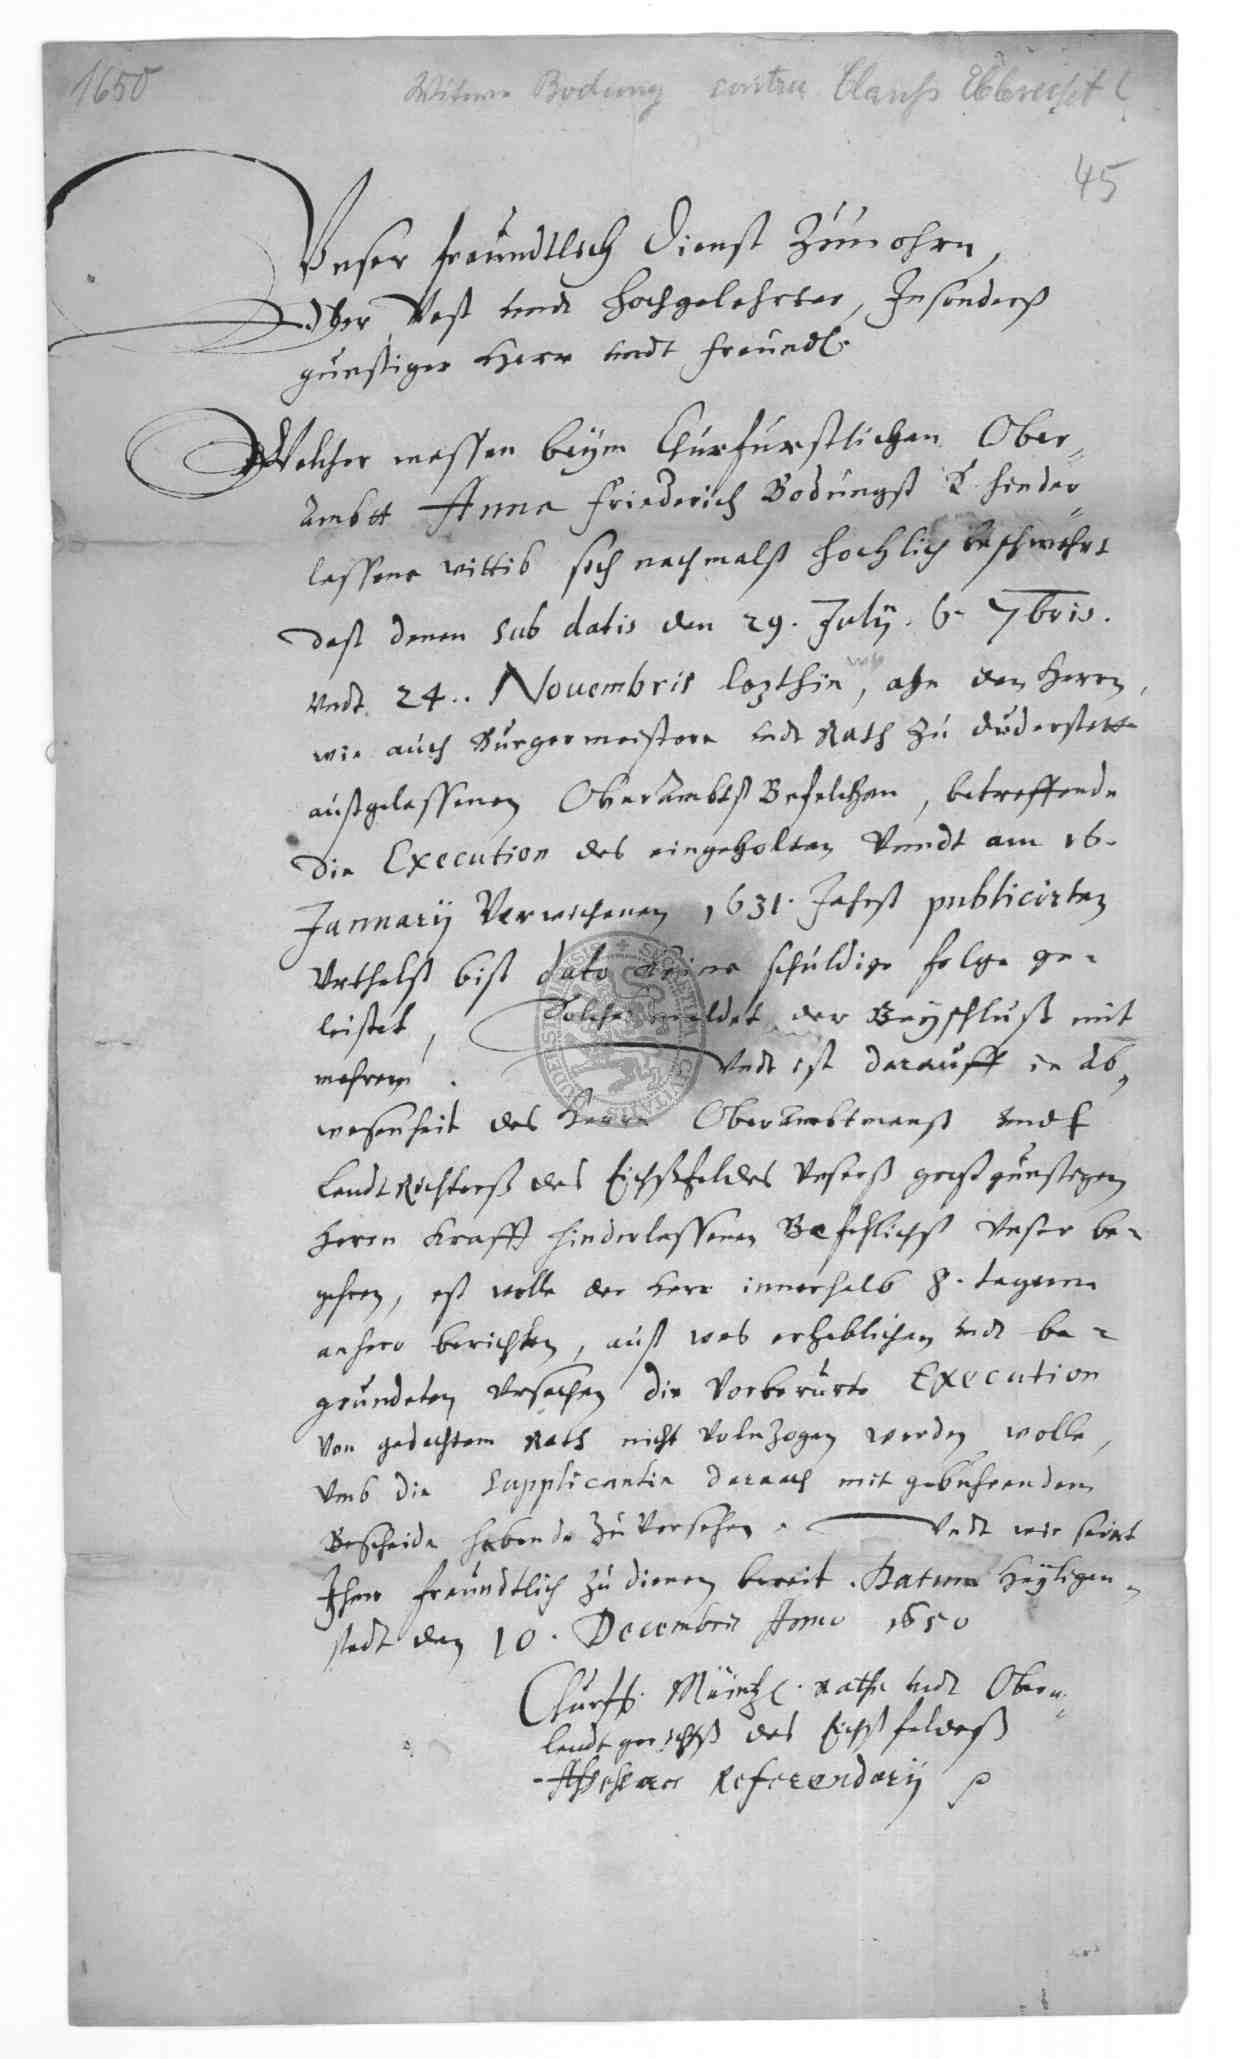 1650
Witwe Bodung contra Clauss Ebbrecht
45
Vnser freundtlich dienst zuuohrn,
Ehr Vest vndt Hochgelehrter, Insonderß
gunstiger Herr vndt freundt.
Welcher massen beym Churfurstlichen Ober„
ambtt Anna Friederich Bodungß hinder„
lassene wittib sich nachmalß hochlich beschwehrt
daß denen sub datis den 29. July. 6. 7bris.
vndt 24.. Nouembris lezthin, ahn den Herrn,
wie auch Burgermeistere vndt Rath zu duderstatt
außgelassenen OberAmbtß Befelchen, betreffende
die Execution des eingeholten vnndt am 16.
January Verwichenen 1631. Jahrß publicirten
Vrthelß biß dato keine schuldige folge ge-
leistet, Solches meldet der Beyschluß mit
mehrem. Vndt ist darauff in Ab„
wesenheit des Herrn OberAmbtmanß vndt
LandtRichterß des Eichßfeldes Vnserß großgunstigen
Herrn Krafft hinderlassenen Befehlichß Vnser be-
gehren, eß wolle der Herr innerhalb 8. tagenn
anhero berichten, auß was erheblichen vndt be-
grundeten Vrsachen die Vorberurte Execution
von gedachtem Rath nicht Volnzogen werden wolle,
Vmb die Supplicantin darnach mit gebuhrenden
Bescheide habende zu Versehen. Vndt wir seint
Ihm freundtlich zu dienen bereit. Datum Heyligen„
stadt den 10. Decembris Anno 1650
Churfl. Mäintzl. Rathe vndt Ober„
landtgerichtß des Eichßfeldeß
Assessores Referendarij